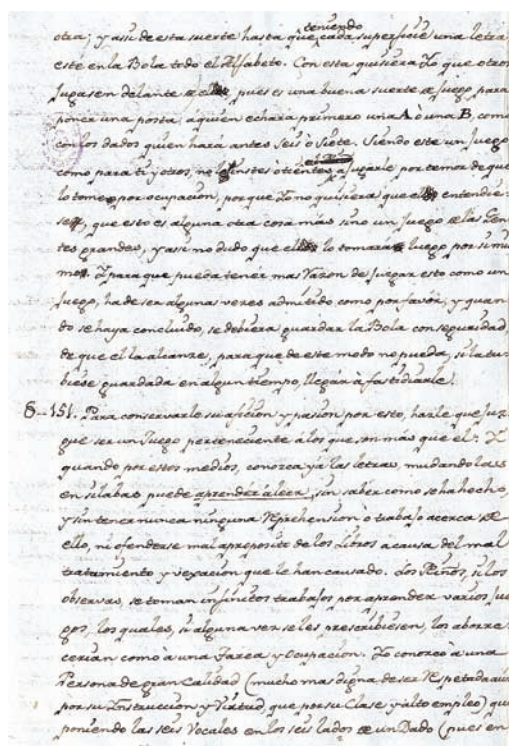 teniendo
otra; y assi de esta suerte hasta que, cada superficie una letra
este en la Bola todo el Alfabeto. Con esta quisiera Yo que otros
jugasen delante de el, pues es una buena suerte de juego, para
poner una posta, a quien echará primero una A ò una B, como
con los dados quien hará antes Seis ò Siete. Siendo este un Juego
como para ti y otros, no le instes ò tientes a jugarle por temor de que
lo tome por ocupación, porque Yo no quisiera que el entendie-
se, que esto es alguna otra cosa más sino un Juego de las Gen-
tes grandes, y assi no dudo que el lo tomara luego por si mis-
mo. Y para que pueda tener mas Razon de Jugar esto como un
Juego, ha de ser algunas veces admitido como por favor; y quan-
do se haya concluido, se debiera guardar la Bola con seguridad,
de que el la alcanze, para que de este modo no pueda, si la tu-
biese guardada en algun tiempo, llegar à fastidiarle.
§-151. Para conservarle su aficion y pasion por esto, hazle que Juz-
gue ser un Juego perteneciente à los que son más que el: Y
quando por estos medios, conozca yà las letras, mudandolas
en silabas, puede aprender à leer, sin saber como se ha hecho,
y sin tener nunca ninguna Reprehension ò trabajo acerca de
ello, ni ofenderse mal aproposito de los Libros a causa del mal
tratamiento y vexacion que le han causado. Los Niños, si los
observas, se toman infinitos trabajos por aprender varios Jue-
gos, los quales, si alguna vez se les prescribiesen, los aborre-
cerian como à una Tarea y Ocupacion. Yo conozco à una
Persona de gran Calidad (mucho mas digna de ser Respetada aun
por su Instruccion y Virtud, que por su Clase y alto empleo) que
poniendo las seis Vocales en los seis lados de un Dado (pues en